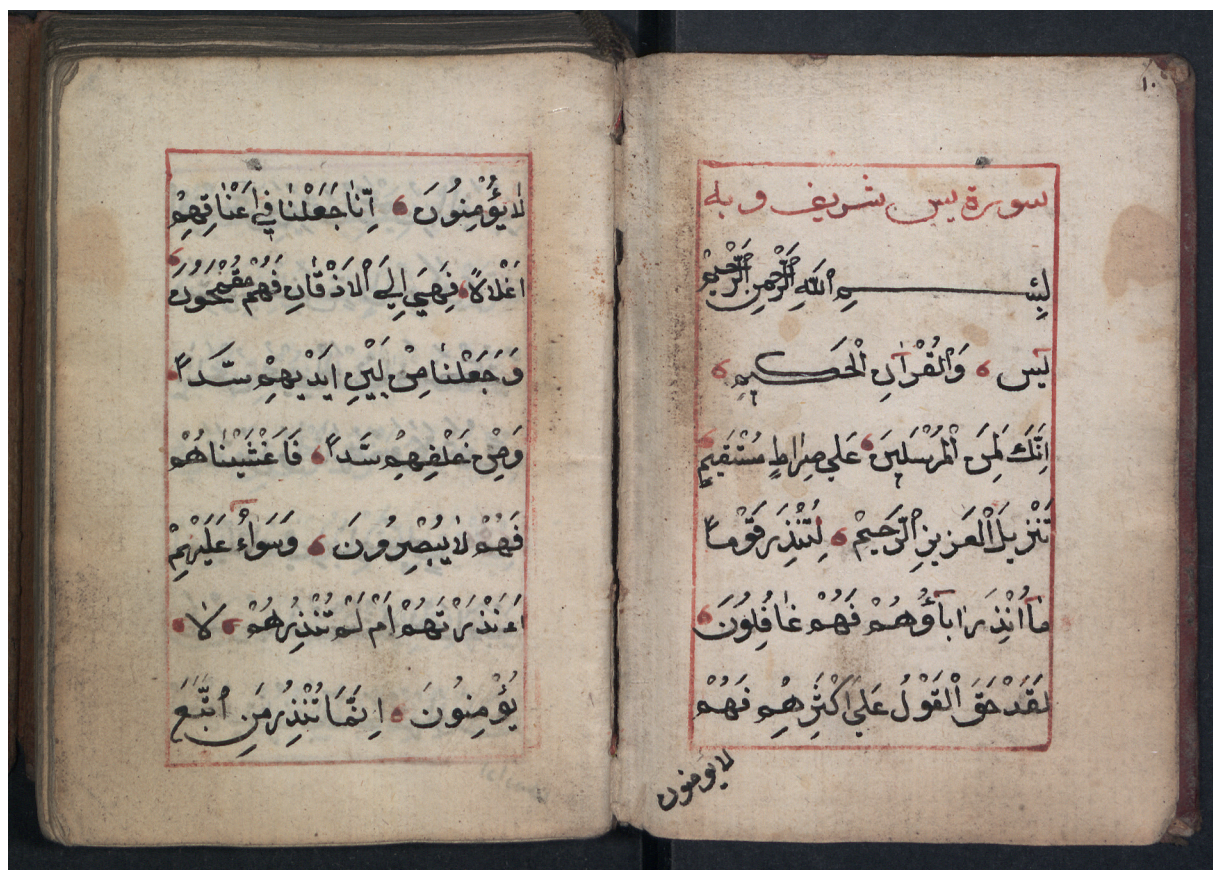 ١٠
سورة يس شريف وبه
بِسْمِ اللّٰهِ الرَّحْمٰنِ الرَّحِيْمِ
يٰسٓ وَالْقُرْآنِ الْحَكِيمِ
اِنَّكَ لَمِنَ الْمُرْسَلِيَن عَلَي صِرَاطٍ مُسْتَقِيمٍ
تَنْزِيلَ الْعَزِيزِ الرَّحِيْمْ لِتُنْذِرَ قَوْماً
مآَ اُنْذِرَ اٰبآَؤُهُمْ فَهُمْ غَافِلُونَ
لَقَدْ حَقَّ الْقَوْلُ عَلَي اَكْثَرِهِمْ فَهُمْ
لا يؤمنون
لاٰ يُؤْمِنُونَ اِنَّا جَعَلْنٰا فِي اَعْنٰاقِهِمْ
اَغْلاٰلاً فَهِيَ اِلَي الْاَذْقٰانِ فَهُمْ مُقْمَحُونَ
وَجَعَلْنٰا مِنْ بَيْنِ اَيْدِيهِمْ سَدّاً
وَمِنْ خَلْفِهِمْ سَدّاً فَاَغْشَيْنٰاهُمْ
فَهُمْ لاٰ يُبْصِرُونَ وَسَوٰاۤءٌ عَلَيْهِمْ
ءَاَنْذَرْتَهُمْ اَمْ لَمْ تُنْذِرْهُمْ لاٰ
يُؤْمِنُونَ اِنَّمَا تُنْذِرُ مَنِ اتَّبَعَ